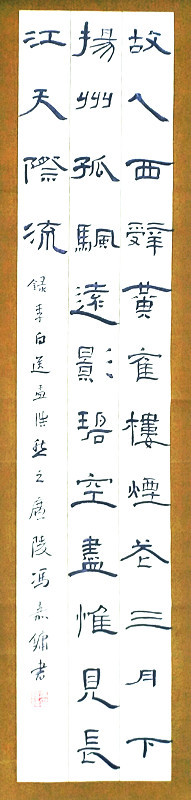 故人西辭黄隺樓煙花三月下
揚州孤颿遠影碧空盡惟見長
江天際流
録李白送孟浩然之廣陵馮志書